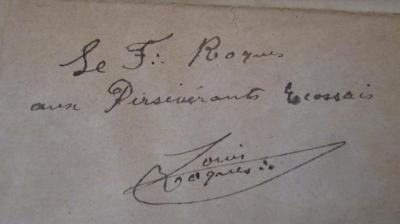 Le F∴ Roques
aux Persévérants Ecossais
Louis
Roques∴